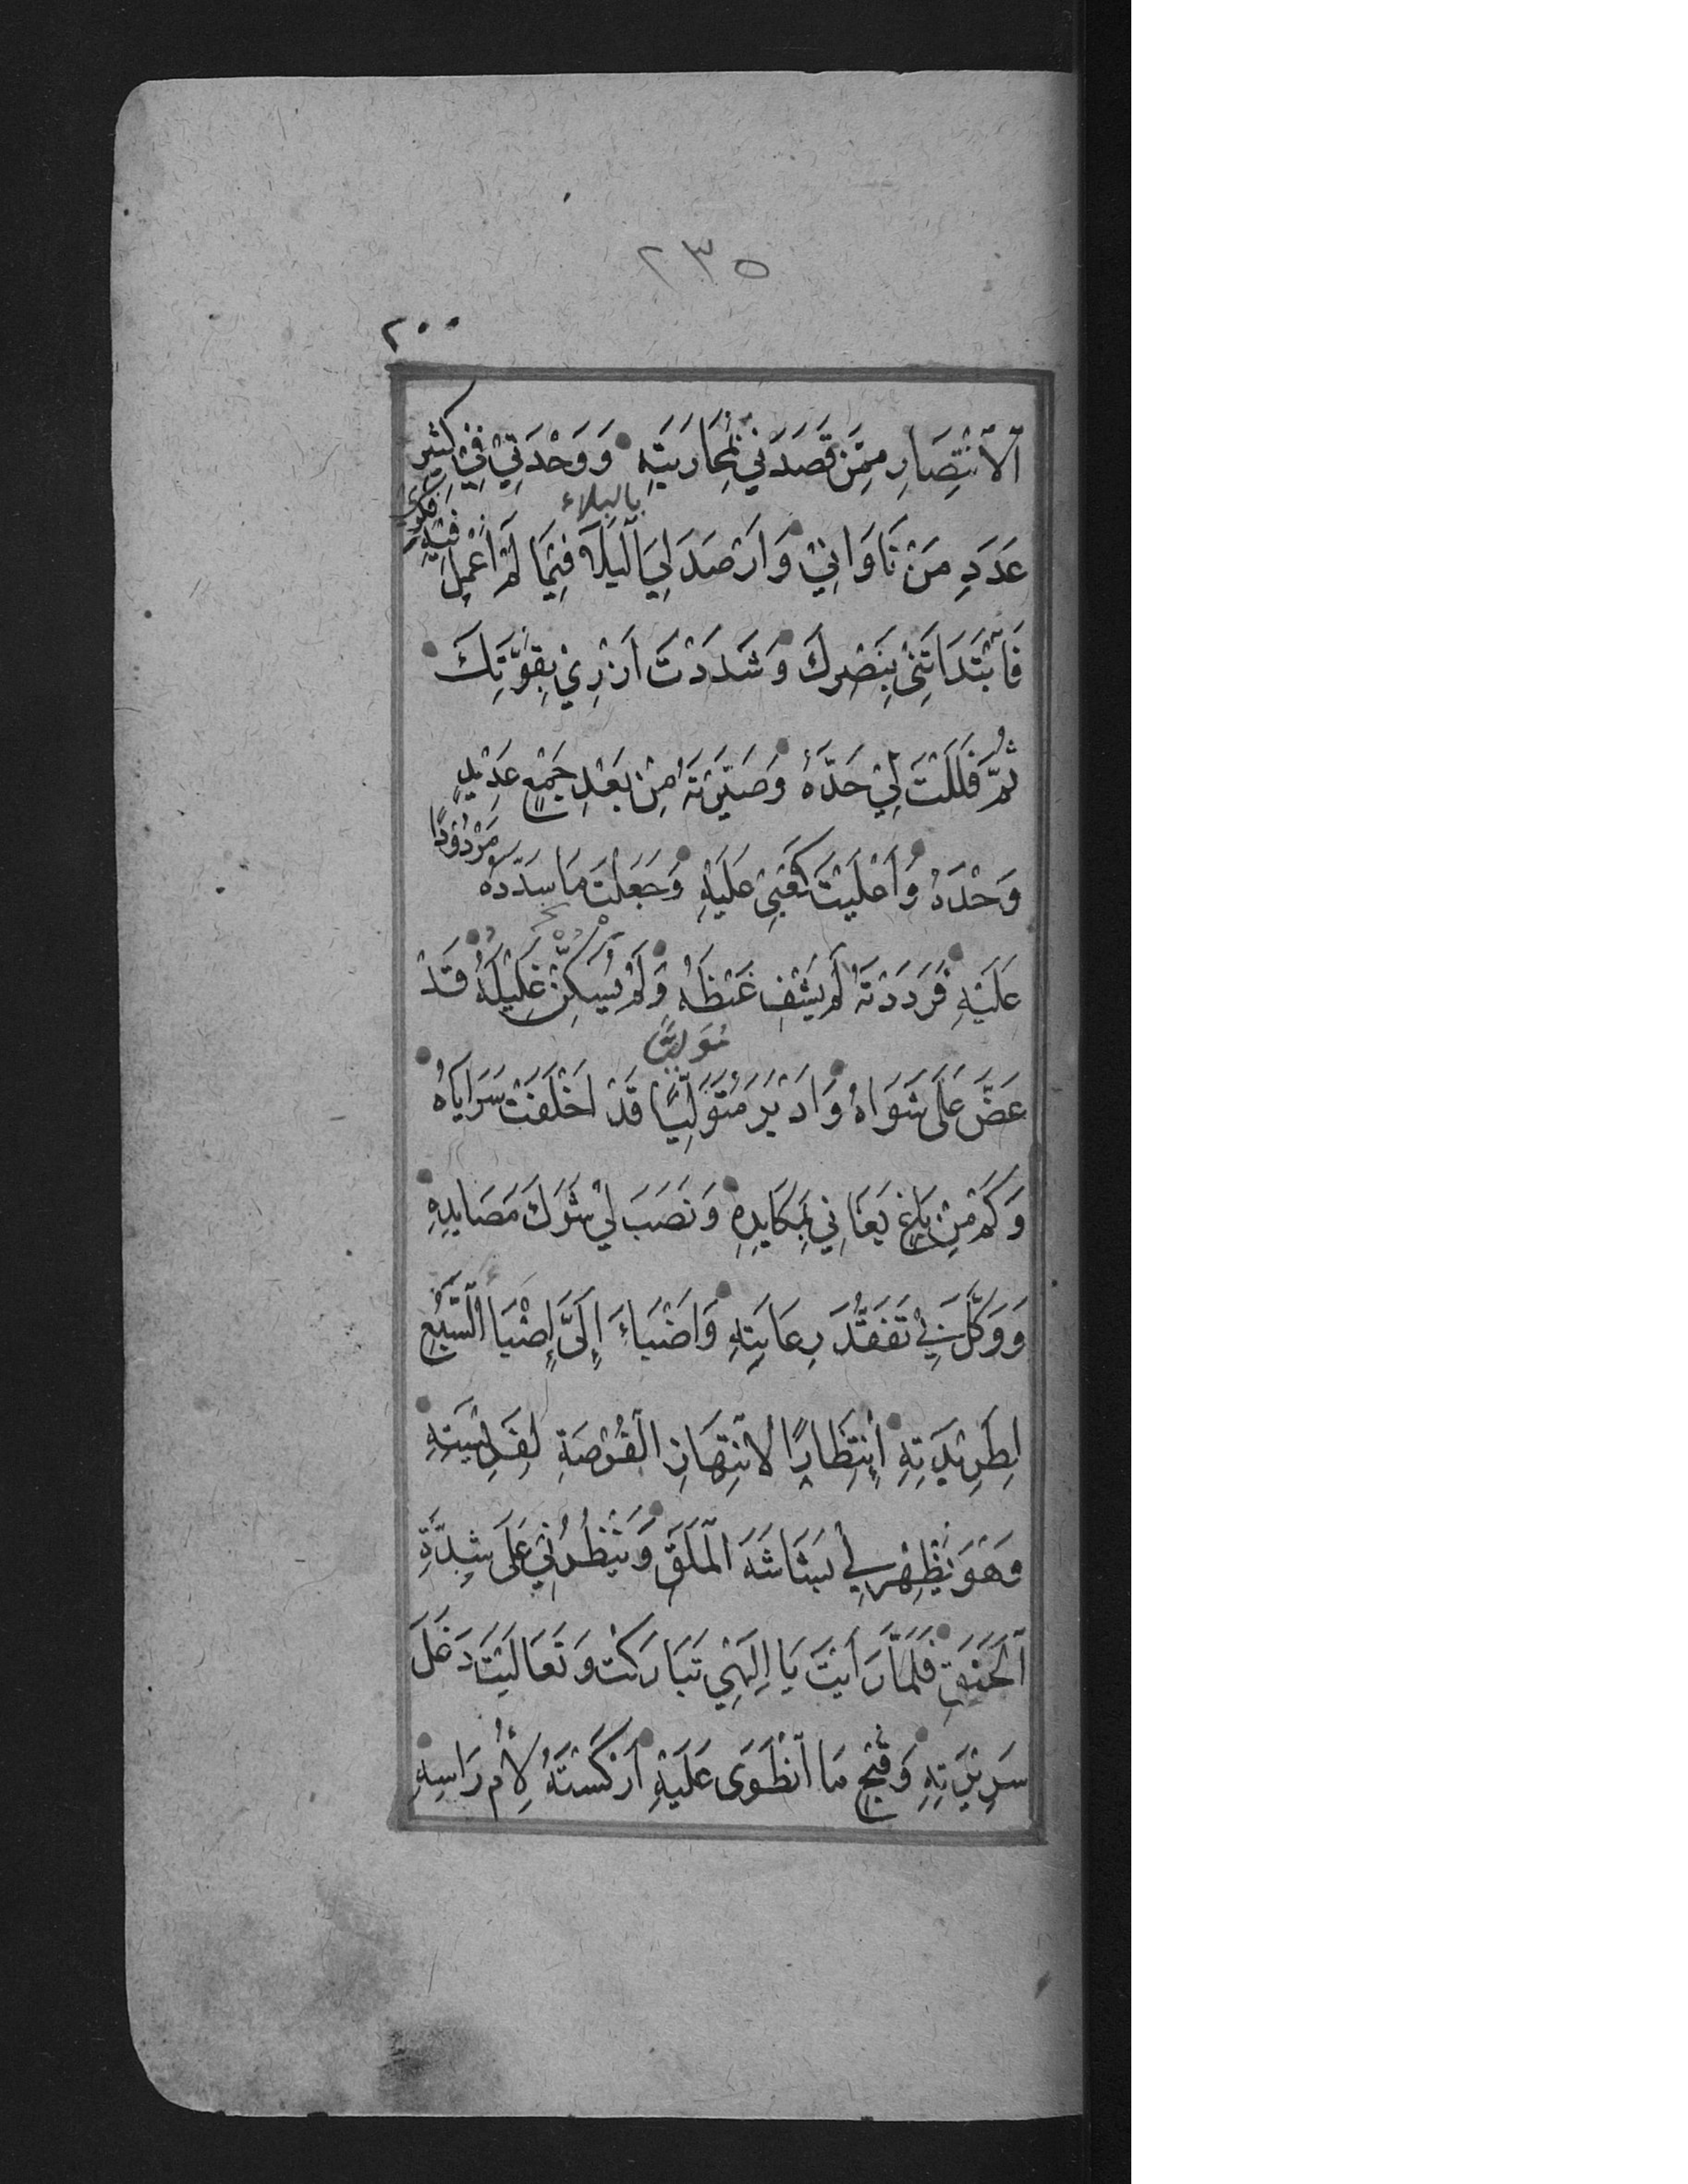 ٢٣٥
٢٠٠
اَلْاِنْتِصَارِ مِمَّنْ قَصَدَنِي بِمُحَارَبَتِهِ وَوَحْدَتِي فِي كَثِيرِ
بالبلاء
عَدَدِ مَنْ نَاوَانِي وَاَرْصَدَ لِيَ الْبَلَاءَ فِيمَا لَمْ اُعْمِلْ فِيهِ فِكْرِي
فَابْتَدَاْتَنِي بِنَصْرِكَ وَشَدَدْتَ اَزْرِي بِقُوَّتِكَ
ثُمَّ فَلَلْتَ لِي حَدَّهُ وَصَيَّرْتَهُ مِنْ بَعْدِ جَمْعٍ عَدِيدٍ
وَحْدَهُ وَاَعْلَيْتَ كَعْبِي عَلَيْهِ وَجَعَلْتَ مَا سَدَّدَهُ مَرْدُودًا
عَلَيْهِ فَرَدَدْتَهُ لَمْ يَشْفِ غَيْظَهُ وَلَمْ يُسَكِّنْ غَلِيلَهُ قَدْ
عَضَّ عَلَى شَوَاهُ وَاَدْبَرَ مُتَوَلِّيًا قَدْ اَخْلَفَتْ سَرَايَاهُ
وَكَمْ مِنْ بَاغٍ بَغَانِي بِمَكَايِدِهِ وَنَصَبَ لِي شَرَكَ مَصَايِدِهِ
وَوَكَّلَ بِي تَفَقُّدَ رِعَايَتِهِ وَاَضْبَاءَ اِلَيَّ اِضْبَاءَ السَّبُعِ
لِطَرِيدَتِهِ اِنْتِظَارًا لِانْتِهَازِ الْفُرْصَةِ لِفَرِيسَتِهِ
وَهُوَ يُظْهِرُ لِي بَشَاشَةَ الْمَلَقِ وَيَنْظُرُنِي عَلَى شِدَّةِ
الْحَنَقِ فَلَمَّا رَاَيْتَ يَا اِلٰهِي تَبَارَكْتَ وَتَعَالَيْتَ دَغَلَ
سَرِيرَتِهِ وَقُبْحَ مَا انْطَوَى عَلَيْهِ اَرْكَسْتَهُ لِاُمِّ رَاْسِهِ